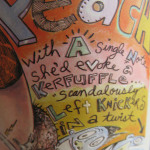 With A Single Note
she'd evoke a
KERFUFFLE...
scandalously
Left Knickers
IN a twist